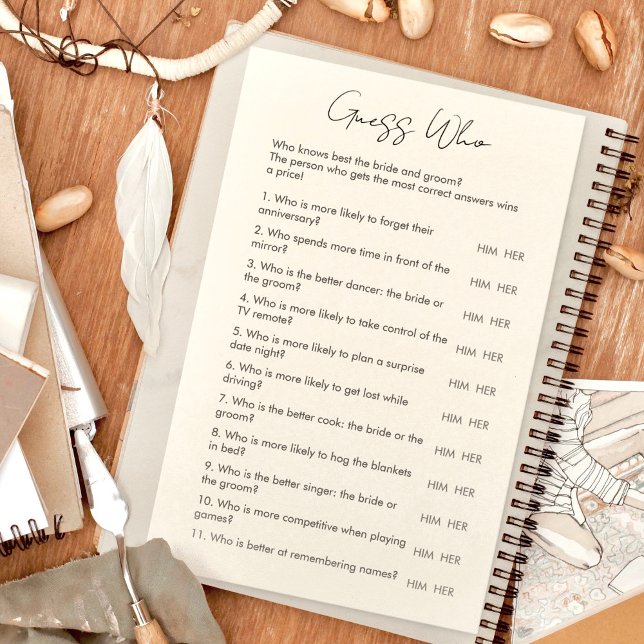 Guess Who
Who knows best the bride and groom?
The person who gets the most correct answers wins
a price!
1. Who is more likely to forget their
anniversary?
HIM HER
2. Who spends more time in front of the
mirror?
HIM HER
3. Who is the better dancer: the bride or
the groom?
HIM HER
4. Who is more likely to take control of the
TV remote?
HIM HER
5. Who is more likely to plan a surprise
date night?
HIM HER
6. Who is more likely to get lost while
driving?
HIM HER
7. Who is the better cook: the bride or the
groom?
HIM HER
8. Who is more likely to hog the blankets
in bed?
HIM HER
9. Who is the better singer: the bride or
the groom?
HIM HER
10. Who is more competitive when playing
games?
HIM HER
11. Who is better at remembering names?
HIM HER